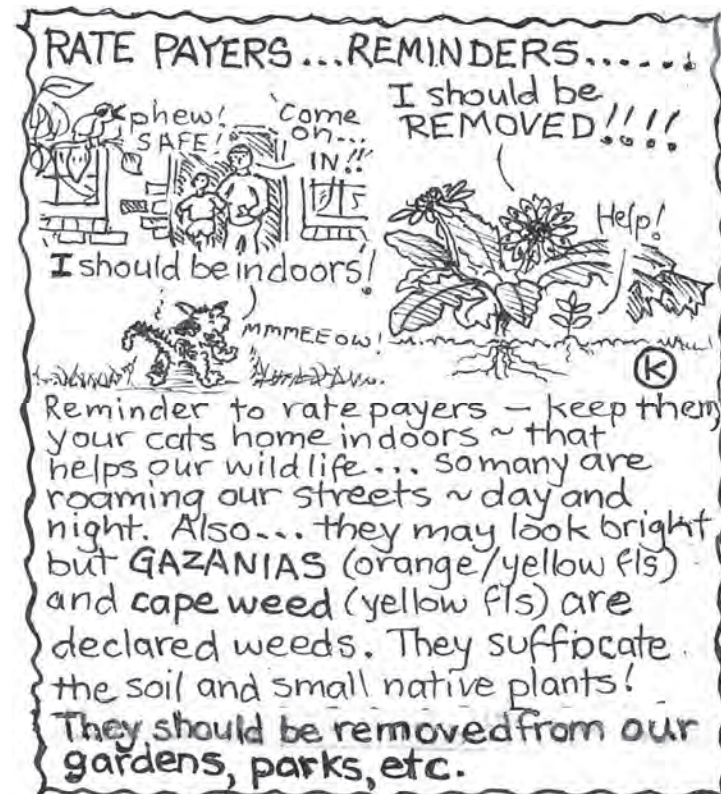 RATE PAYERS...REMINDERS......
phew!
SAFE!
Come
on...
IN!!
I should be indoors!
MMMEEOW!
I should be
REMOVED!!!!
Help!
K
Reminder to rate payers – keep them,
your cats home indoors ~ that
helps our wildlife... so many are
roaming our streets ~ day and
night. Also... they may look bright
but GAZANIAS (orange/yellow fls)
and cape weed (yellow fls) are
declared weeds. They suffocate
the soil and small native plants!
They should be removed from our
gardens, parks, etc.